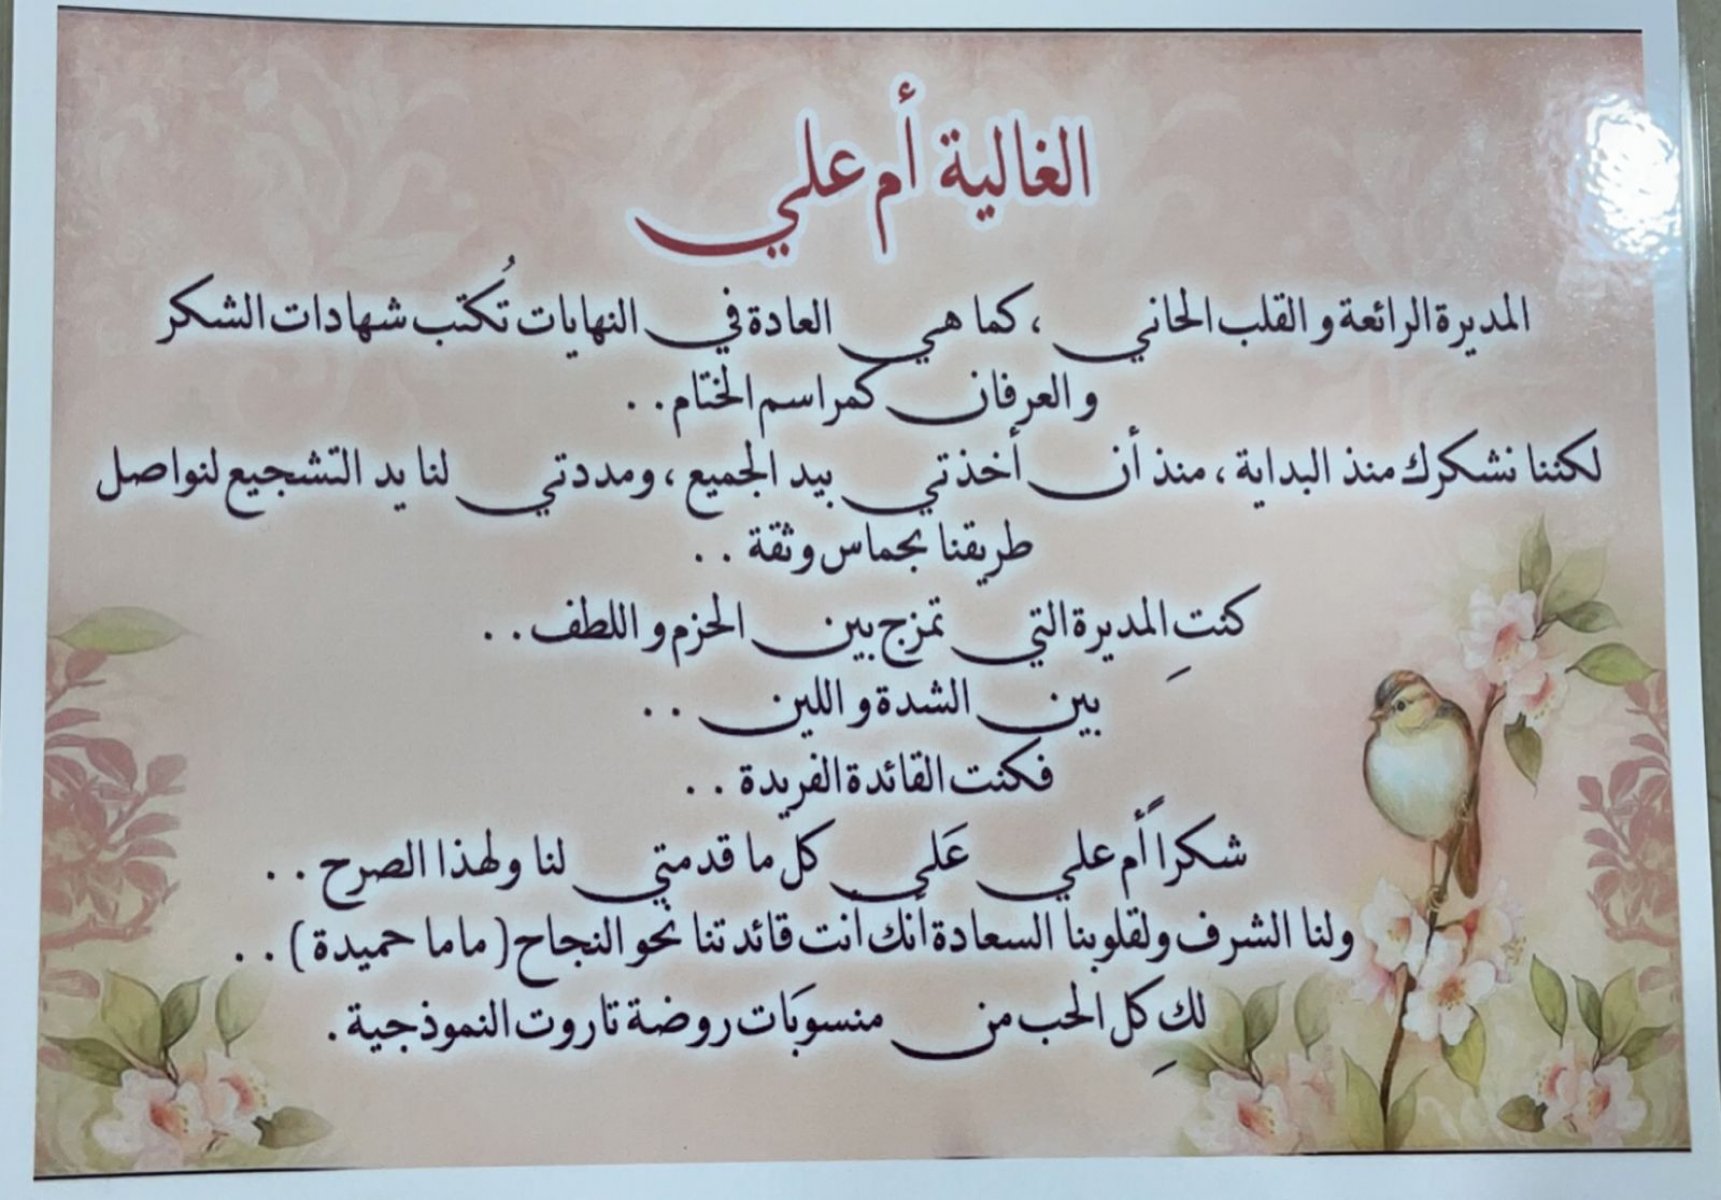 الغالية أم علي
المديرة الرائعة و القلب الحاني ، كما هي العادة في النهايات تُكتب شهادات الشكر
و العرفان كمراسم الختام . .
لكننا نشكرك منذ البداية ، منذ أن أخذتي بيد الجميع ، ومددتي لنا يد التشجيع لنواصل
طريقنا بحماس وثقة . .
كنتِ المديرة التي تمزج بين الحزم و اللطف . .
بين الشدة و اللين . .
فكنت القائدة الفريدة . .
شكراً أم علي عَلي كل ما قدمتي لنا ولهذا الصرح . .
ولنا الشرف ولقلوبنا السعادة أنك أنت قائدتنا نحو النجاح ( ماما حميدة ) . .
لكِ كل الحب من منسوبَات روضة تاروت النموذجية .